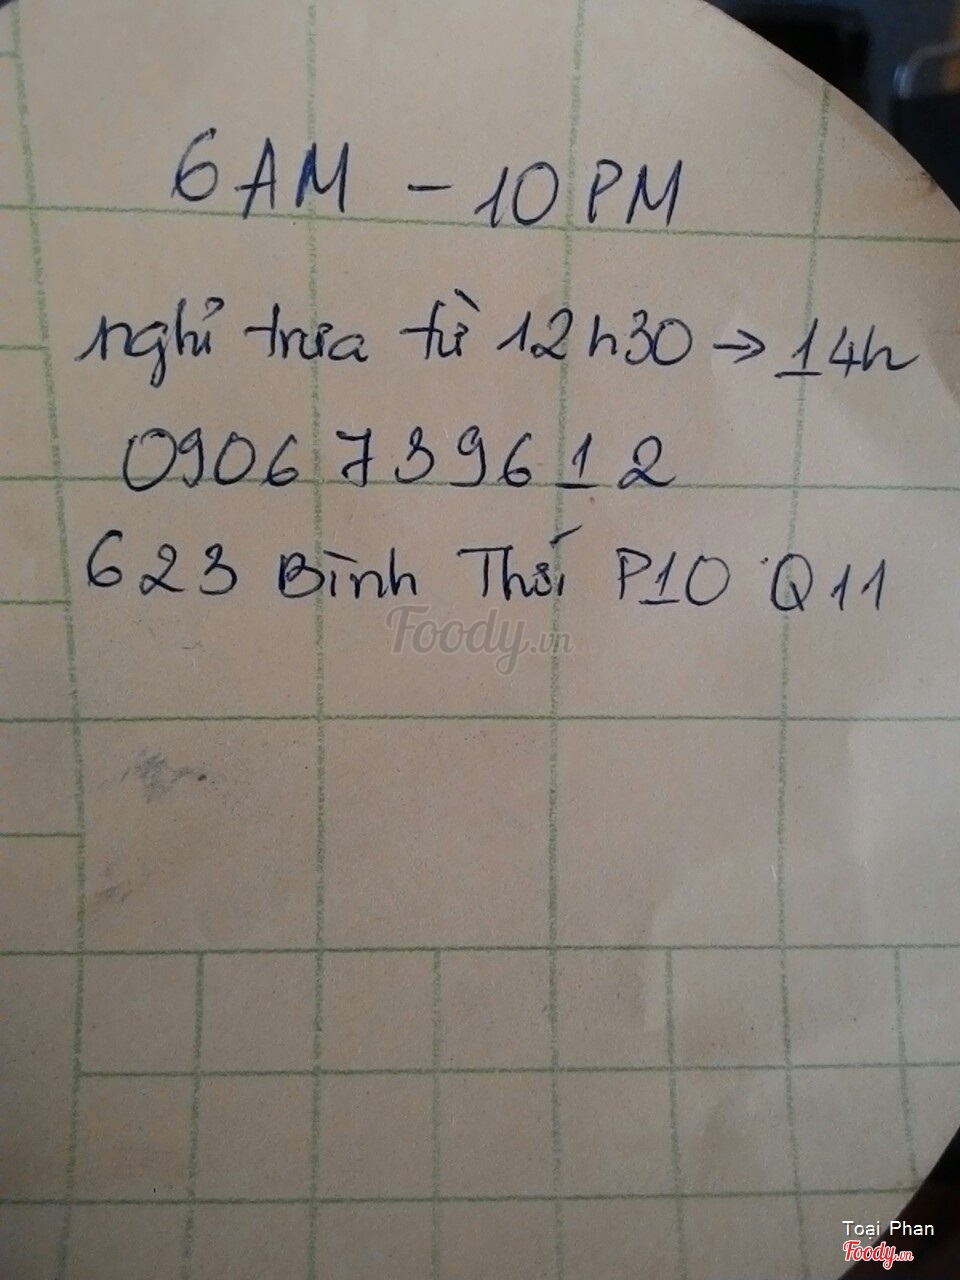 6 AM - 10 PM
nghỉ trưa từ 12h30 → 14h
0906739612
623 Bình Thới P10 Q11
Foody.vn
Toại Phan
Foody.vn